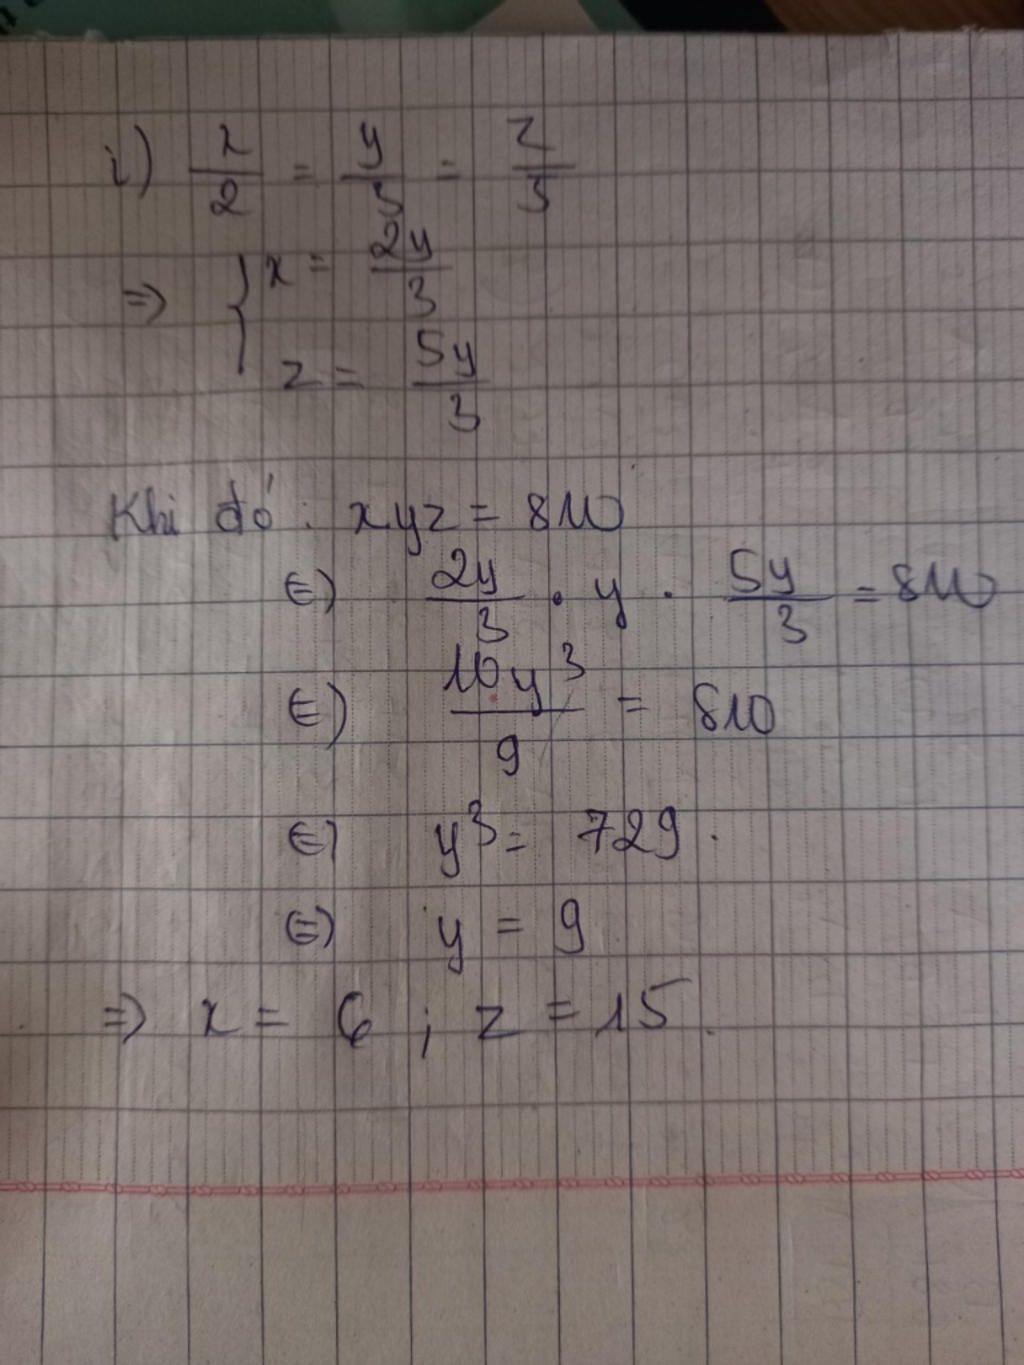 i) x/2 = y/3 = z/5
=> { x = 2y/3
z = 5y/3
Khi đó : xyz = 810
<=> 2y/3 . y . 5y/3 = 810
<=> 10y³/9 = 810
<=> y³ = 729.
<=> y = 9
=> x = 6 ; z = 15.